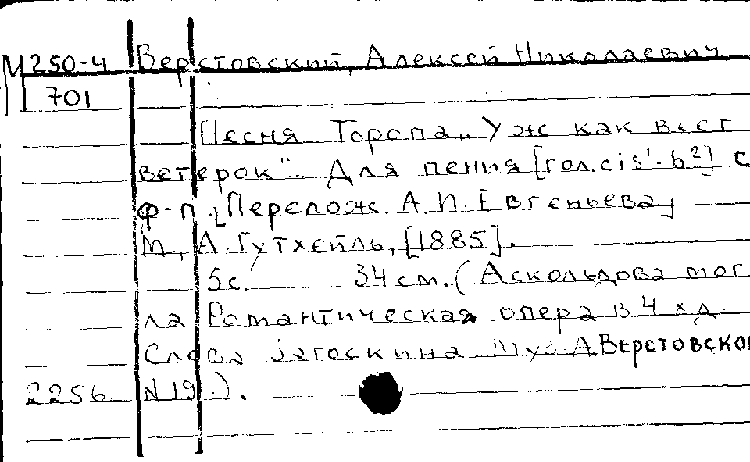 М 250-4 Верстовский, Алексей Николаевич
701
Песня Торопа „Уж как веет
ветерок“. Для пения [гол. cis¹-h²] с
ф-п. [Перелож. А. П. Евгеньева]
М., А. Гутхейль, [1885].
5с. 34 см. (Аскольдова мог
ла Романтическая опера в 4 хд
Слова Загоскина Муз А.Верстовской
2256 N 19.).